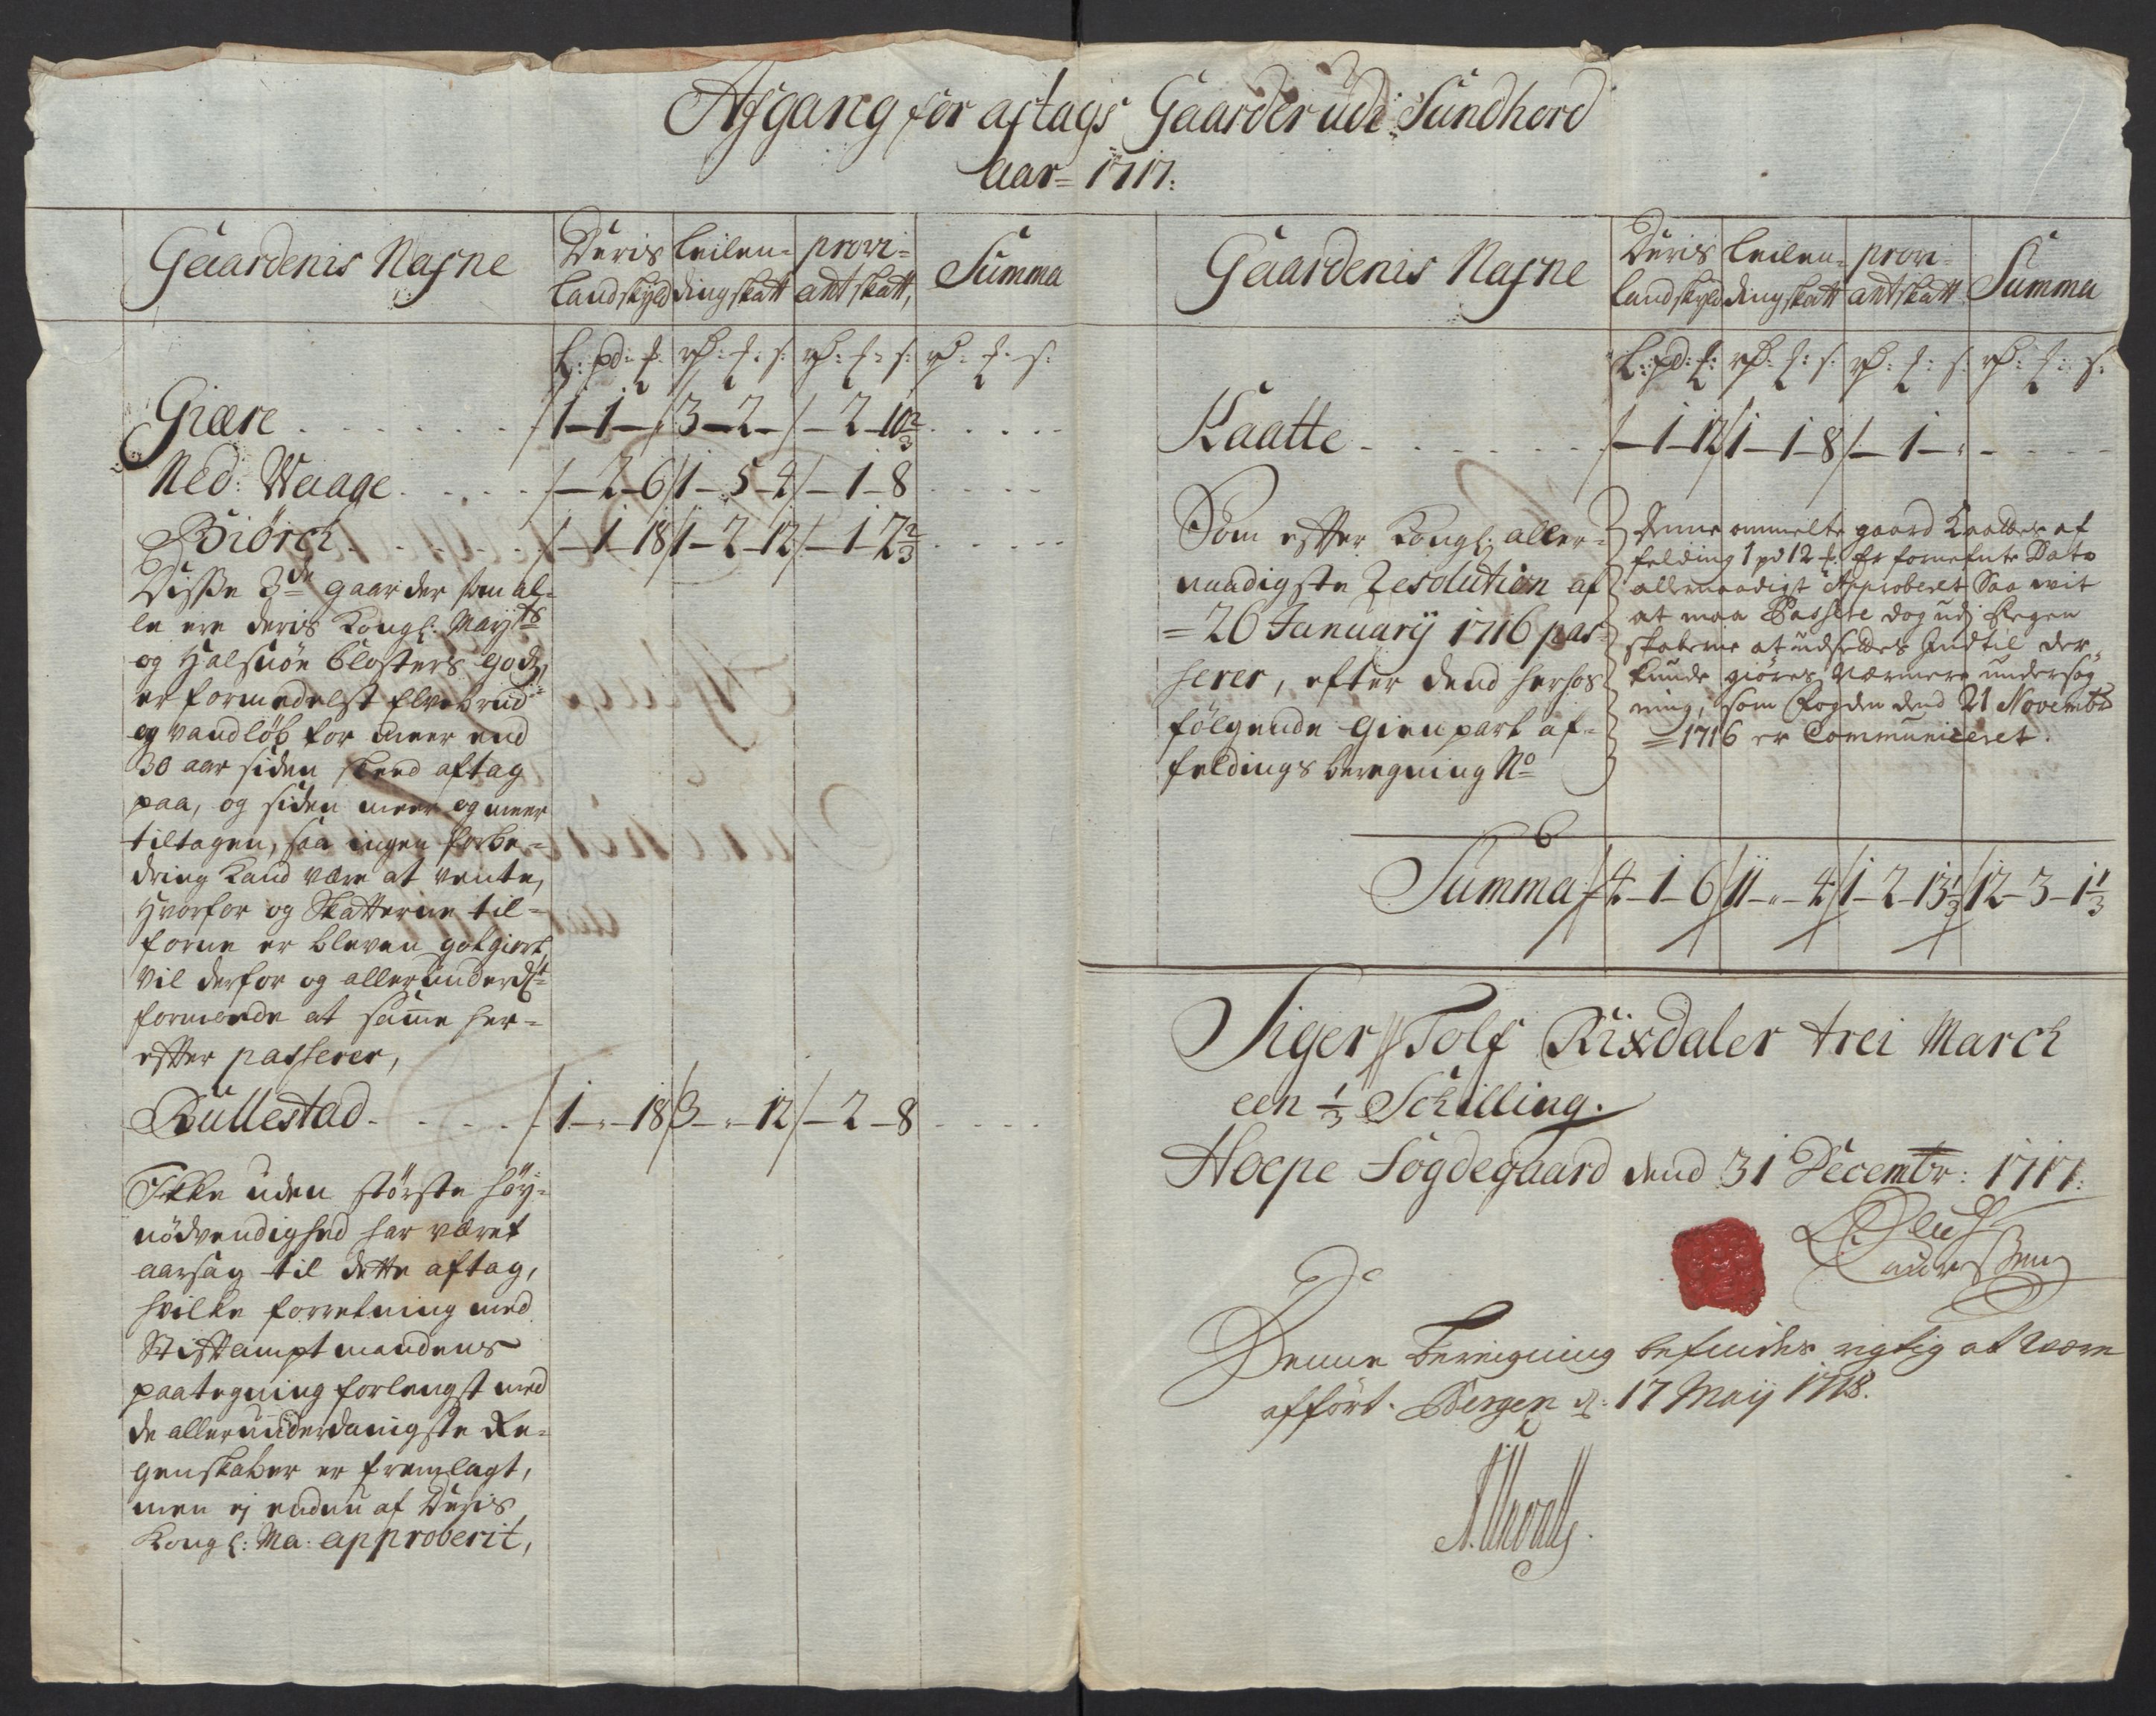 Afgang for aftags Gaarder udi Sundhord
Aar = 1717:
Gaardenis Nafne
Deris Landskyld
Leilendingskatt
Proviantskatt,
Summa
L: pd: f:
rd: f: s:
rd: f: s:
rd: f: s:
Giære . . . . . . 1 - 1 - " 3 - 2 - " - 2 - 10 2/3 . . . .
Ned: Waage . . . . - 2 - 6 1 - 5 - 4 - 1 - 8 . . . .
Biörch . . . . . - 1 - 18 1 - 2 - 12 - 1 - 2 2/3 . . . .
Disse 3de gaarder som al-
le ere deris Kongl: Mayts
og Halsnöe Closters gods,
er formedelst Elvebrud
og vandlöb for meer end
30 aar siden skeed aftag
paa, og siden meer og meer
tiltagen, saa ingen forbe-
dring kand være at vente,
hvorfor og Skatterne til-
forne er bleven gotgiort,
vil derfor og allerunderdst
formode at samme her-
effter passerer,
Bullestad . . . . . 1 - " - 18 3 - " - 12 - 2 - 8 . . . .
Icke uden störste höy-
nödvendighed har været
aarsag til dette aftag,
hvilke forretning med
Stiftamptmandens
paategning forlengst med
de allerunderdanigste Re-
genskaber er fremlagt,
men ej endnu af Deris
Kongl: Ma: approberit,
Gaardenis Nafne
Deris Landskyld
Leilendingskatt
proviantskatt
Summa
L: pd: f:
rd: f: s:
rd: f: s:
rd: f: s:
Kaatte . . . . . . - 1 - 12 1 - 1 - 8 - 1 - " . . . .
Som effter Kongl: aller-
naadigste Resolution af
= 26 January 1716 pas-
serer, efter dend herhos
fölgende gienpart af-
feldings beregning No
6
Denne ommelte gaard Kaattes af
felding 1 pd 12 f: Er fornefnte Dato
allernaadigst Approberet Saa vit
at maa Passere dog udj Regen
skaberne at udsettes Indtil der,
kunde giöres Nærmere undersög
ning, som Fogden dend 21 Novembr
= 1716 er Communiceret.
Summa 4 - 1 - 6 11 - " - 4 1 - 2 - 13 1/3 12 - 3 - 1 1/3
Siger Tolf Rixdaler trei March
een 1/3 Schilling.
Hoepe Fogdegaard dend 31 Decembr: 1717:
Laurssen
Denne Bereigning befindes rigtig at være
afffört. Bergen d: 17 Maij 1718.